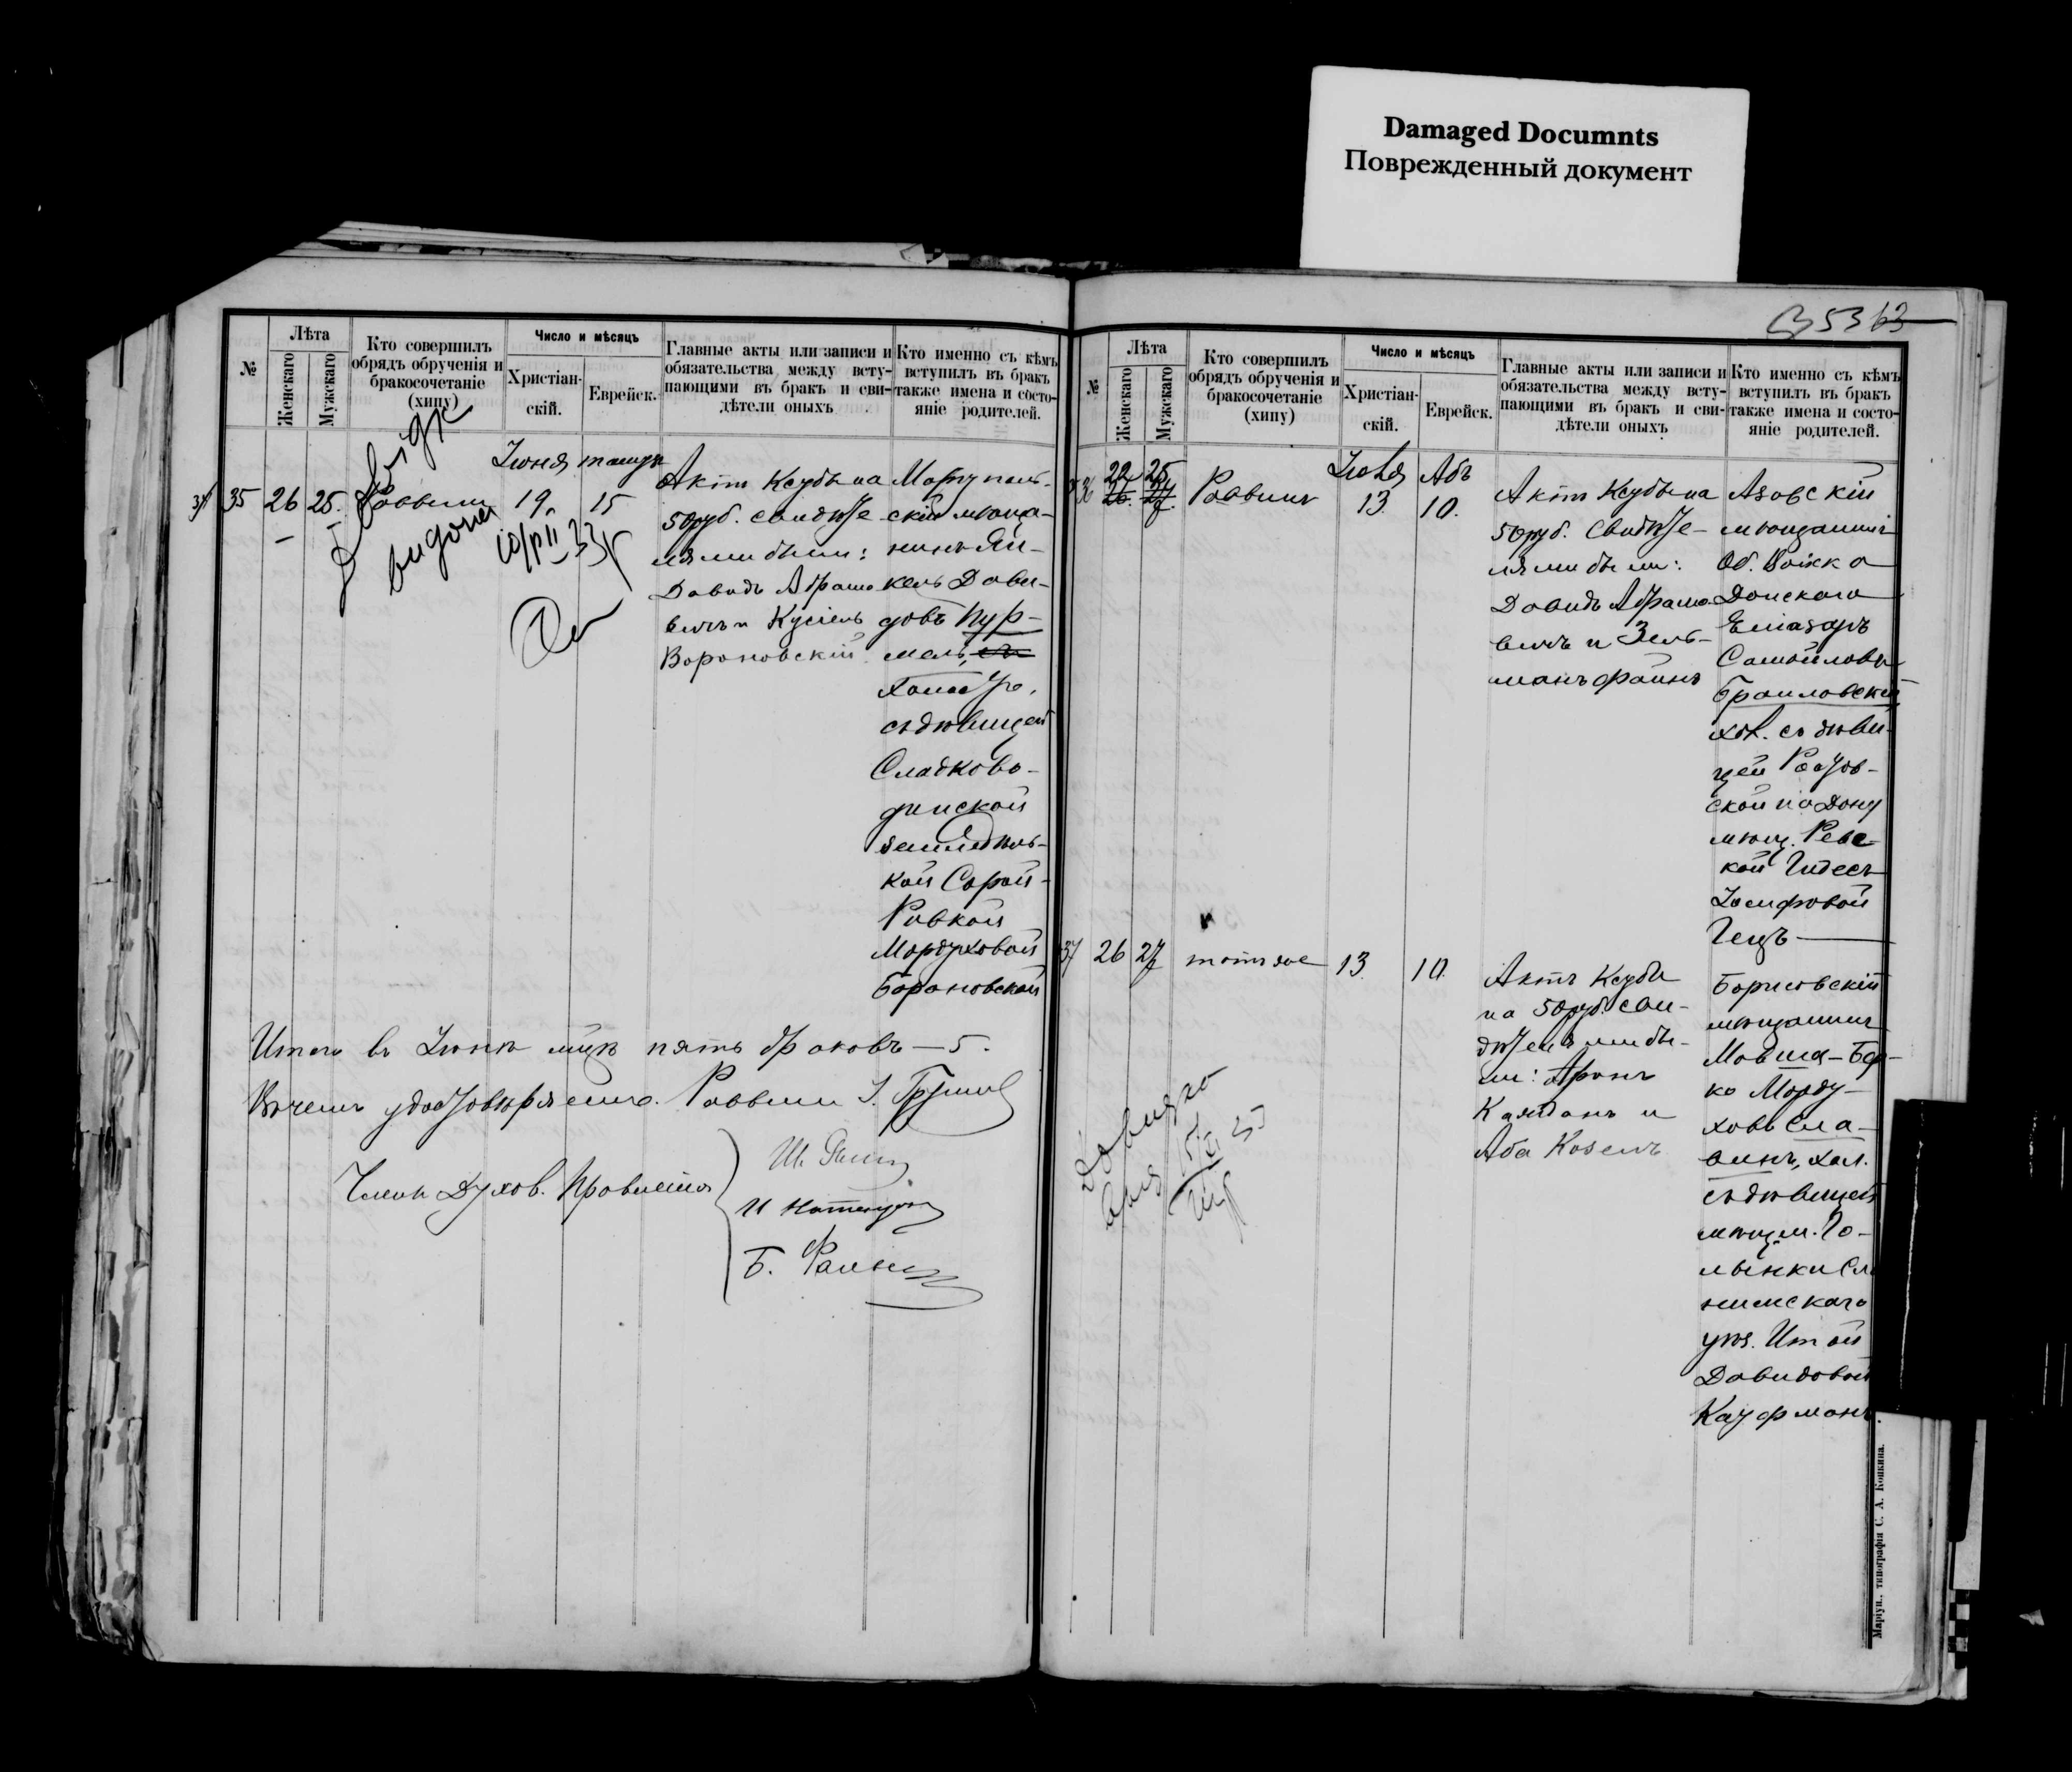 Damaged Documnts
Поврежденный документ
5363
№
Лѣта
Женскаго
Мужскаго
Кто совершилъ
обрядъ обрученія и
бракосочетаніе
(хипу)
Число и мѣсяцъ
Христіан-
скій.
Еврейск.
Главные акты или записи и
обязательства между всту-
пающими въ бракъ и сви-
дѣтели оныхъ
Кто именно съ кѣмъ
вступилъ въ бракъ
также имена и состо-
яніе родителей.
Іюня
35 26 25. Раввинъ 19. 15
Актъ Ксубы на
50 руб. свидѣте-
лями были:
Давидъ Абрамо
вичъ и Кусіель
Вороновскій
Маріуполь-
скій мѣща-
нинъ Ян-
кель Дави-
довъ Кур-
съ дѣвицей
Сладково-
динской
земледѣль-
кой Сарой-
Равкой
Мордуховой
Барановской
выдана
Итого въ Іюнѣ мцѣ пять браковъ — 5.
Въ чемъ удостовѣряемъ. Раввинъ
Члены Духов. Правленія
Б.
№
Лѣта
Женскаго
Мужскаго
Кто совершилъ
обрядъ обрученія и
бракосочетаніе
(хипу)
Число и мѣсяцъ
Христіан-
скій.
Еврейск.
Главные акты или записи и
обязательства между всту-
пающими въ бракъ и сви-
дѣтели оныхъ
Кто именно съ кѣмъ
вступилъ въ бракъ
также имена и состо-
яніе родителей.
Іюля Абъ
36 22 25 Раввинъ 13 10.
Актъ Ксубы на
50 руб. свидѣте-
лями были:
Давидъ Абрамо
вичъ и Зель-
манъ Файнъ
Азовскій
мѣщанинъ
Об. Войска
Донского
Еліазаръ
Самойловъ
Браиловскій
хол. съ дѣви-
цей Ростов-
ской на Дону
мѣщ. Рев-
кой Гитесъ
Гецъ
37 26 27 тотъ же 13 10.
Актъ Ксубы
на 50 руб. сви-
дѣтелями бы-
ли: Аронъ
Каяданъ и
Аба Козелъ
Борисовскій
мѣщанинъ
Мовша-Бер-
ко Морду-
ховъ Сла-
винъ, хол.
съ дѣвицей
мѣщ. м. Го-
лынки Сло
нимскаго
уѣз. Итой
Давидовой
Кауфманъ.
Маріуп., типографія С. А. Копкина.